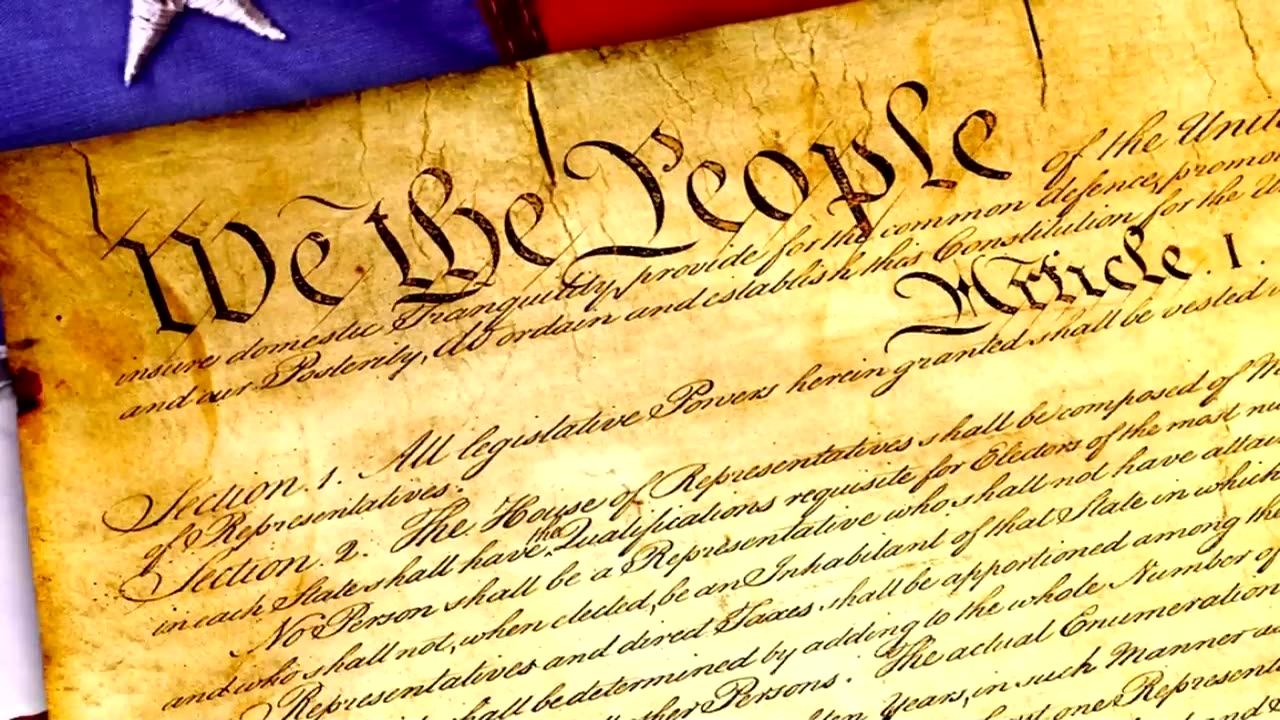 We the People of the Unit
insure domestic Tranquility, provide for the common defence, promo
and our Posterity, do ordain and establish this Constitution for the U
Article. I.
Section. 1. All legislative Powers herein granted shall be vested
of Representatives.
Section. 2. The House of Representatives shall be composed of M
in each State shall have the Qualifications requisite for Electors of the most nu
No Person shall be a Representative who shall not have attai
and who shall not, when elected, be an Inhabitant of that State in which
Representatives and direct Taxes shall be apportioned among the
shall be determined by adding to the whole Number of
other Persons. The actual Enumeration
ten Years, in such Manner a
least one Representa